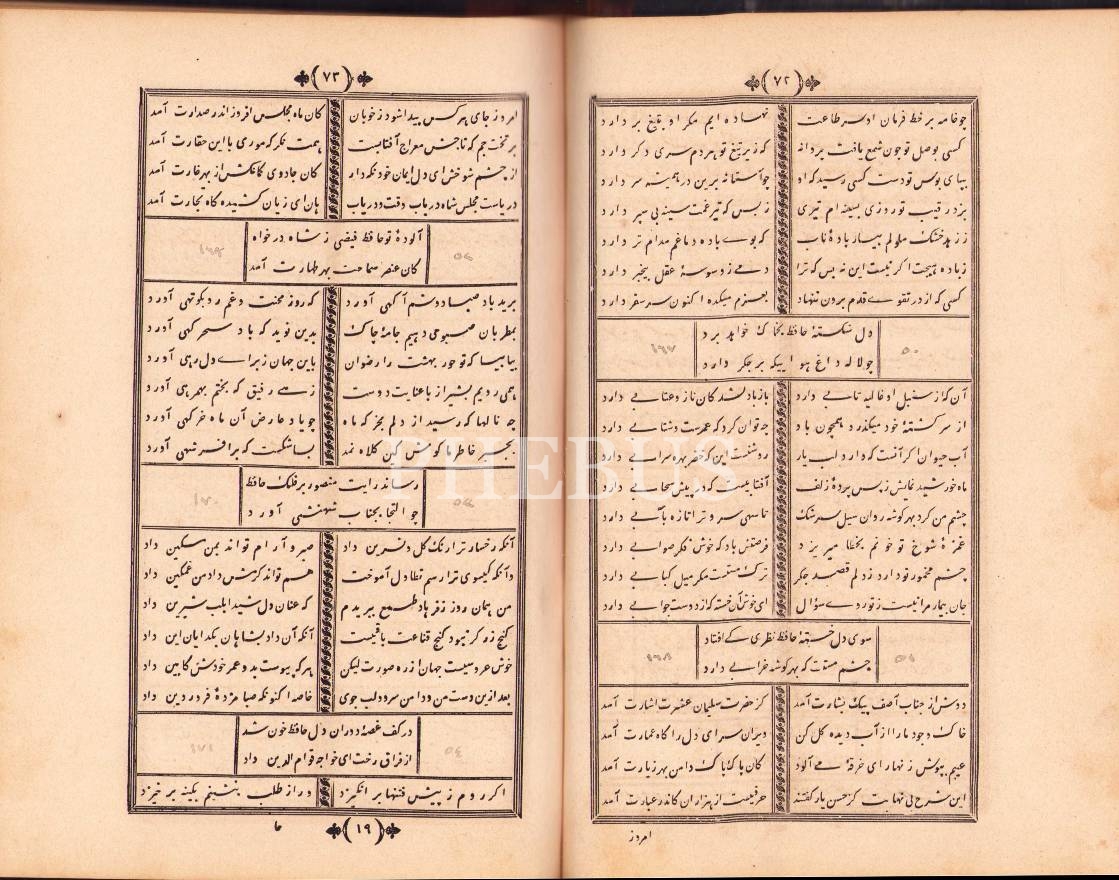 ﴿٧٢﴾
چو خامه بر خط فرمان او سر طاعت نهاده ایم مکر او بتیغ بر دارد
کسی بوصل تو چون شمع یافت پروانه که زیر تیغ تو هر دم سری دکر دارد
بپای بوس تو دست کسی رسید که او چو آستانه برین در همیشه سر دارد
بزد رقیب تو روزی بسینه ام تیری ز بس که تیر غمت سینه بی سپر دارد
ز زهد خشک ملولم بیار بادهٔ ناب که بوی باده دماغم مدام تر دارد
ز باده هیچت اکر نیست این نه بس که ترا دمی ز وسوسهٔ عقل بیخبر دارد
کسی که از در تقوی قدم برون ننهاد بعزم میکده اکنون سر سفر دارد
دل شکستهٔ حافظ بخاک خواهد برد
چو لاله داغ هوایی که بر جکر دارد
١٦٧
٥٠
آن که از سنبل او غالیه تابی دارد باز با دلشدکان ناز و عتابی دارد
از سر کشتهٔ خود میکذرد همچون باد چه توان کرد که عمرست و شتابی دارد
آب حیوان اکر آنست که دارد لب یار روشنست این که خضر بهره سرابی دارد
ماه خورشید نمایش ز پس پردهٔ زلف آفتابیست که در پیش سحابی دارد
چشم من کرد بهر کوشه روان سیل سرشک تا سهی سرو ترا تازه بآبی دارد
غمزهٔ شوخ تو خونم بخطا میریزد فرصتش باد که خوش فکر صوابی دارد
چشم مخمور تو دارد ز دلم قصد جکر ترک مستست مکر میل کبابی دارد
جان بیمار مرا نیست ز تو روی سؤال ای خوش آن خسته که از دوست جوابی دارد
سوی دل خستهٔ حافظ نظری کی افتاد
چشم مستت که بهر کوشه خرابی دارد
١٦٨
٥١
دوش از جناب آصف پیک بشارت آمد کز حضرت سلیمان عشرت اشارت آمد
خاک وجود ما را از آب دیده کل کن ویران سرای دل را کاه عمارت آمد
عیبم بپوش زنهار ای خرقهٔ می آلود کان پاک پاک دامن بهر زیارت آمد
این شرح بی نهایت کز حسن یار کفتند حرفیست از هزاران کاندر عبارت آمد
امروز
﴿٧٣﴾
امروز جای هر کس پیدا شود ز خوبان کان ماه مجلس افروز اندر صدارت آمد
بر تخت جم که تاجش معراج آفتابست همت نکر که موری با این حقارت آمد
از چشم شوخش ای دل ایمان خود نکه دار کان جادوی کمانکش از بهر غارت آمد
دریاست مجلس شاه دریاب وقت و دریاب هان ای زیان کشیده کاه تجارت آمد
آلودهٔ تو حافظ فیضی ز شاه درخواه
کان عنصر سماحت بهر طهارت آمد
١٦٩
٥٢
برید باد صبا دوشم آکهی آورد که روز محنت و غم رو بکوتهی آورد
بمطربان صبوحی دهیم جامهٔ چاک بدین نوید که باد سحرکهی آورد
بیا بیا که تو حور بهشت را رضوان باین جهان ز برای دل رهی آورد
همی رویم بشیراز با عنایت دوست زهی رفیق که بختم بهمرهی آورد
چه نالها که رسید از دلم بخرکه ماه چو یاد عارض آن ماه خرکهی آورد
بجبر خاطر ما کوش کین کلاه نمد بسا شکست که بر افسر شهی آورد
رساند رایت منصور بر فلک حافظ
چو التجا بجناب شهنشهی آورد
١٧٠
٥٣
آنکه رخسار ترا رنک کل و نسرین داد صبر و آرام تواند بمن مسکین داد
وآنکه کیسوی ترا رسم تطاول آموخت هم تواند کرمش داد من غمکین داد
من همان روز ز فرهاد طمع ببریدم که عنان دل شیدا بلب شیرین داد
کنج زر کر نبود کنج قناعت باقیست آنکه آن داد بشاهان بکدایان این داد
خوش عروسیست جهان از ره صورت لیکن هر که پیوست بدو عمر خودش کابین داد
بعد ازین دست من و دامن سرو و لب جوی خاصه اکنون که صبا مژدهٔ فروردین داد
در کف غصهٔ دوران دل حافظ خون شد
از فراق رخت ای خواجه قوام الدین داد
١٧١
٥٤
اکر روم ز پیش فتنها بر انکیزد ور از طلب بنشینم بکینه بر خیزد
﴿١٩﴾
PHEBUS